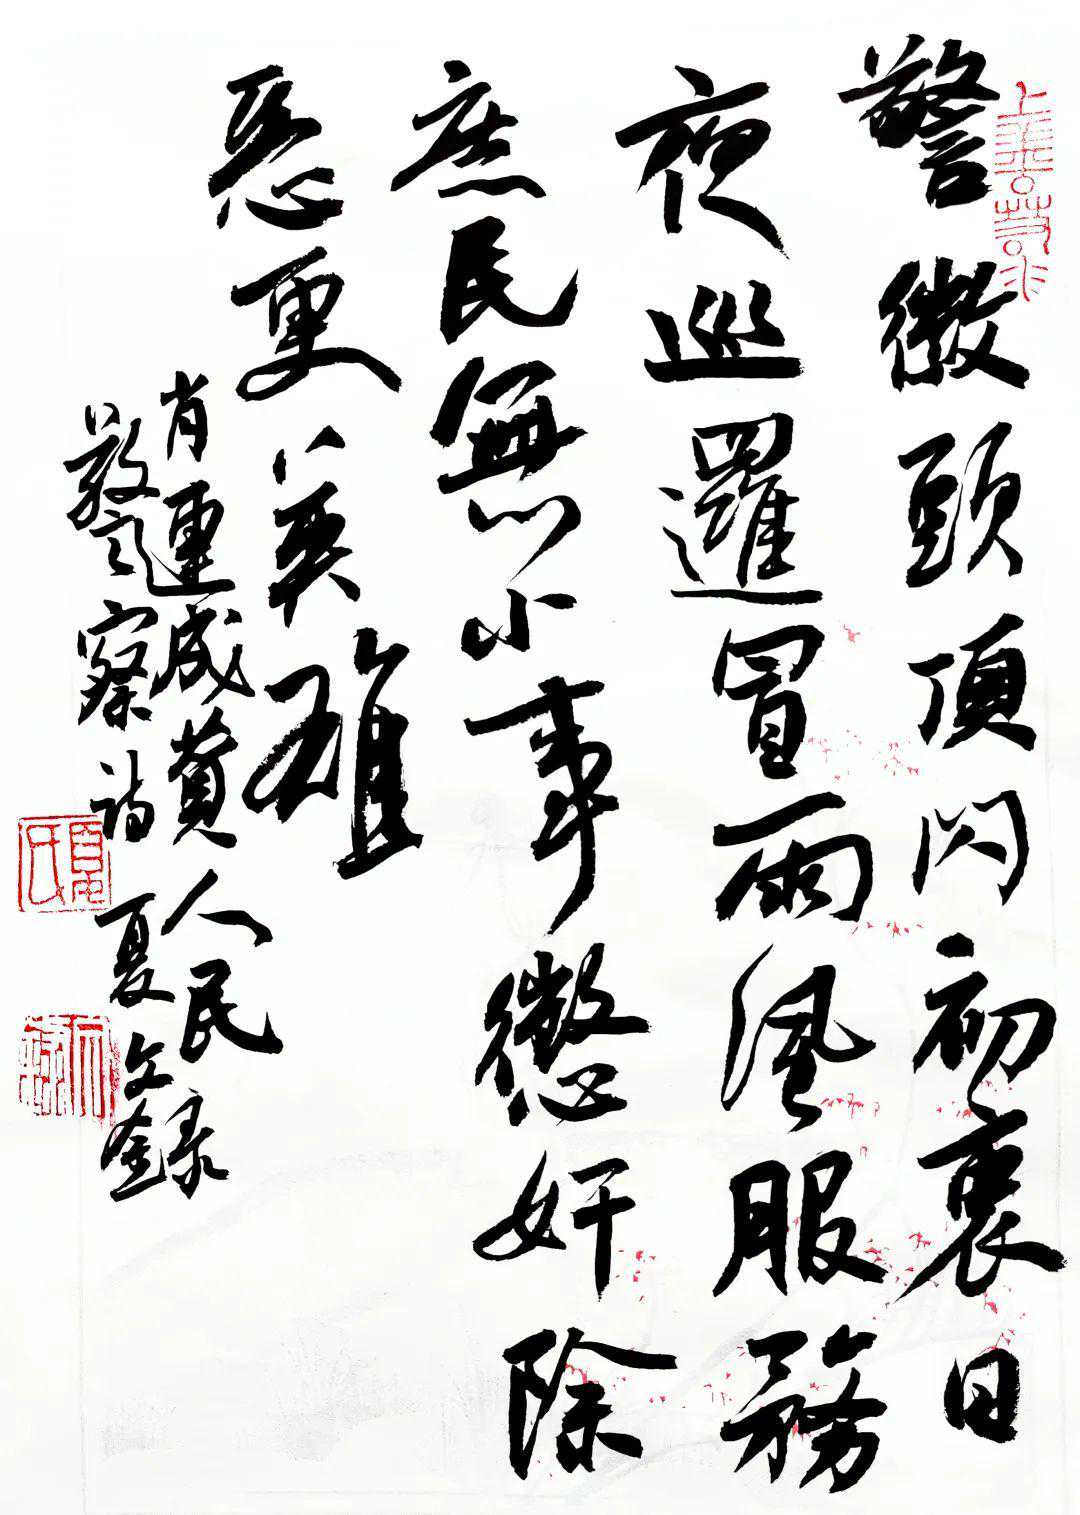 警徽頭頂閃初衷日
夜巡邏冒雨風服務
庶民無小事懲奸除
惡更英雄
肖運成贊人民
警察詩 夏文錄
上善若水
夏氏